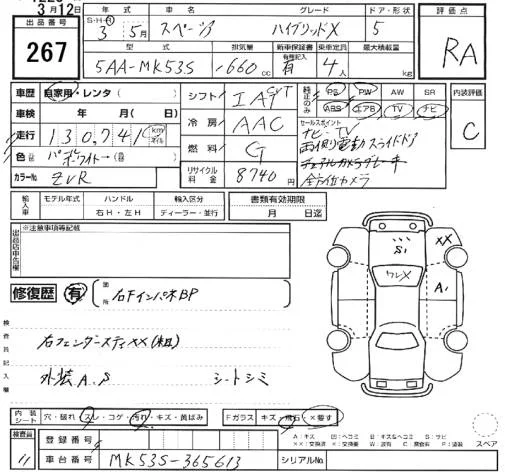 3月12日
出品番号
267
年式 車名 グレード ドア・形状 評価点
S・H・R
3年5月 スペーシア ハイブリッドX 5 RA
型式 排気量 新車保証書 乗車定員 最大積載量
5AA-MK53S 660cc 有 4人 kg
車歴 自家用・レンタ( )
車検 年 月( 日)
走行 130,741 km マイル
色 パールホワイト→( )
カラーNo. ZVR
シフト IAT CVT
冷房 AAC
燃料 G
リサイクル料金 8740円
純正のみ PS PW AW SR
ABS エアB TV ナビ
内装評価
C
セールスポイント
ナビ・TV
両側電動スライドドア
全方位カメラ
輸入車 モデル年式 ハンドル 輸入区分 書類有効期限
年 右H・左H ディーラー・並行 月 日迄
出品店申告欄 ※注意事項等記載
修復歴 有 箇所 右FインパネBP
検査員記入欄
右フェンダーステイXX(軽)
外装A.S シートシミ
S1
XX
A1
ワレX
内装シート 穴・破れ スレ・コゲ・汚れ・キズ・黄ばみ Fガラス キズ・飛石・×要す
検査員
11
登録番号
車台番号 MK53S-365613 シリアルNo.
A:キズ U:ヘコミ B:キズ&ヘコミ S:サビ
XX:交換済 X:交換要 W:波有 C:腐食有 P:塗装
スペア